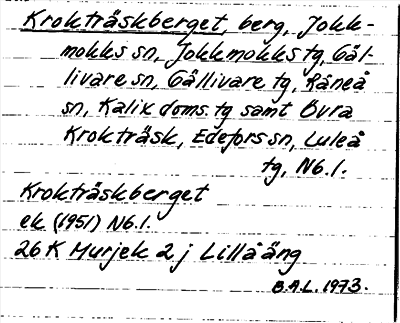 Krokträskberget, berg, Jokk-
mokks sn, Jokkmokks tg, Gäl-
livare sn, Gällivare tg, Råneå
sn, Kalix doms. tg samt Övra
Krokträsk, Edefors sn, Luleå
tg, Nb. l.
Krokträskberget
ek (1951) Nb. l.
26 K Murjek 2 j Lillåäng
B.A.L. 1973.